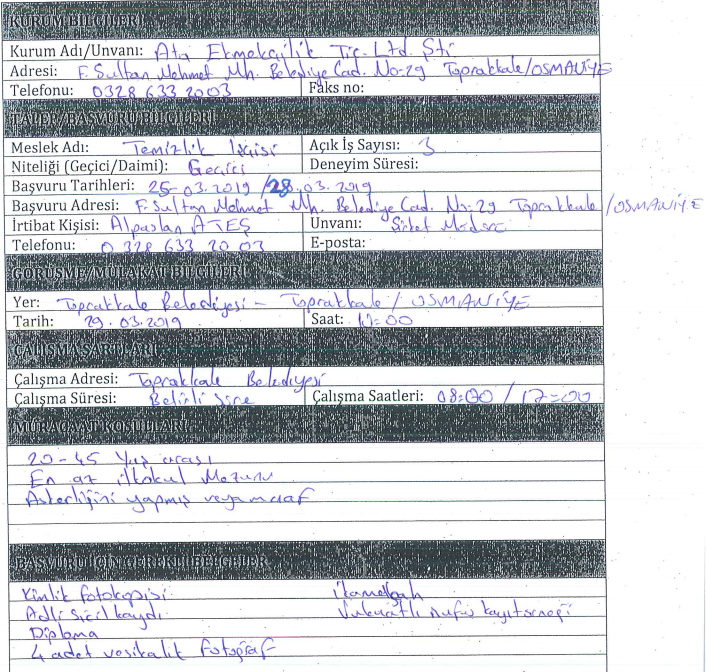 KURUM BİLGİLERİ
Kurum Adı/Unvanı: Ata Ekmekçilik Tic. Ltd. Şti
Adresi: F. Sultan Mehmet Mh. Belediye Cad. No-29 Toprakkale/OSMANİYE
Telefonu: 0328 633 2003 Faks no:
TALEP/BAŞVURU BİLGİLERİ
Meslek Adı: Temizlik İşçisi Açık İş Sayısı: 3
Niteliği (Geçici/Daimi): Geçici Deneyim Süresi:
Başvuru Tarihleri: 25-03.2019 / 28.03.2019
Başvuru Adresi: F. Sultan Mehmet Mh. Belediye Cad. No-29 Toprakkale/OSMANİYE
İrtibat Kişisi: Alpaslan ATEŞ Unvanı: Şirket Müdürü
Telefonu: 0 328 633 20 03 E-posta:
GÖRÜŞME/MÜLAKAT BİLGİLERİ
Yer: Toprakkale Belediyesi - Toprakkale / OSMANİYE
Tarih: 29.03.2019 Saat: :00
ÇALIŞMA ŞARTLARI
Çalışma Adresi: Toprakkale Belediyesi
Çalışma Süresi: Belirli Süre Çalışma Saatleri: 08:00 / 17:00
MÜRACAAT KOŞULLARI
20-45 Yaş arası
En az ilkokul Mezunu
Askerliğini yapmış veya muaf
BAŞVURU İÇİN GEREKLİ BELGELER
Kimlik fotokopisi İkametgah
Adli Sicil kaydı Vukuatlı nüfus kayıt örneği
Diploma
4 adet vesikalık fotoğraf